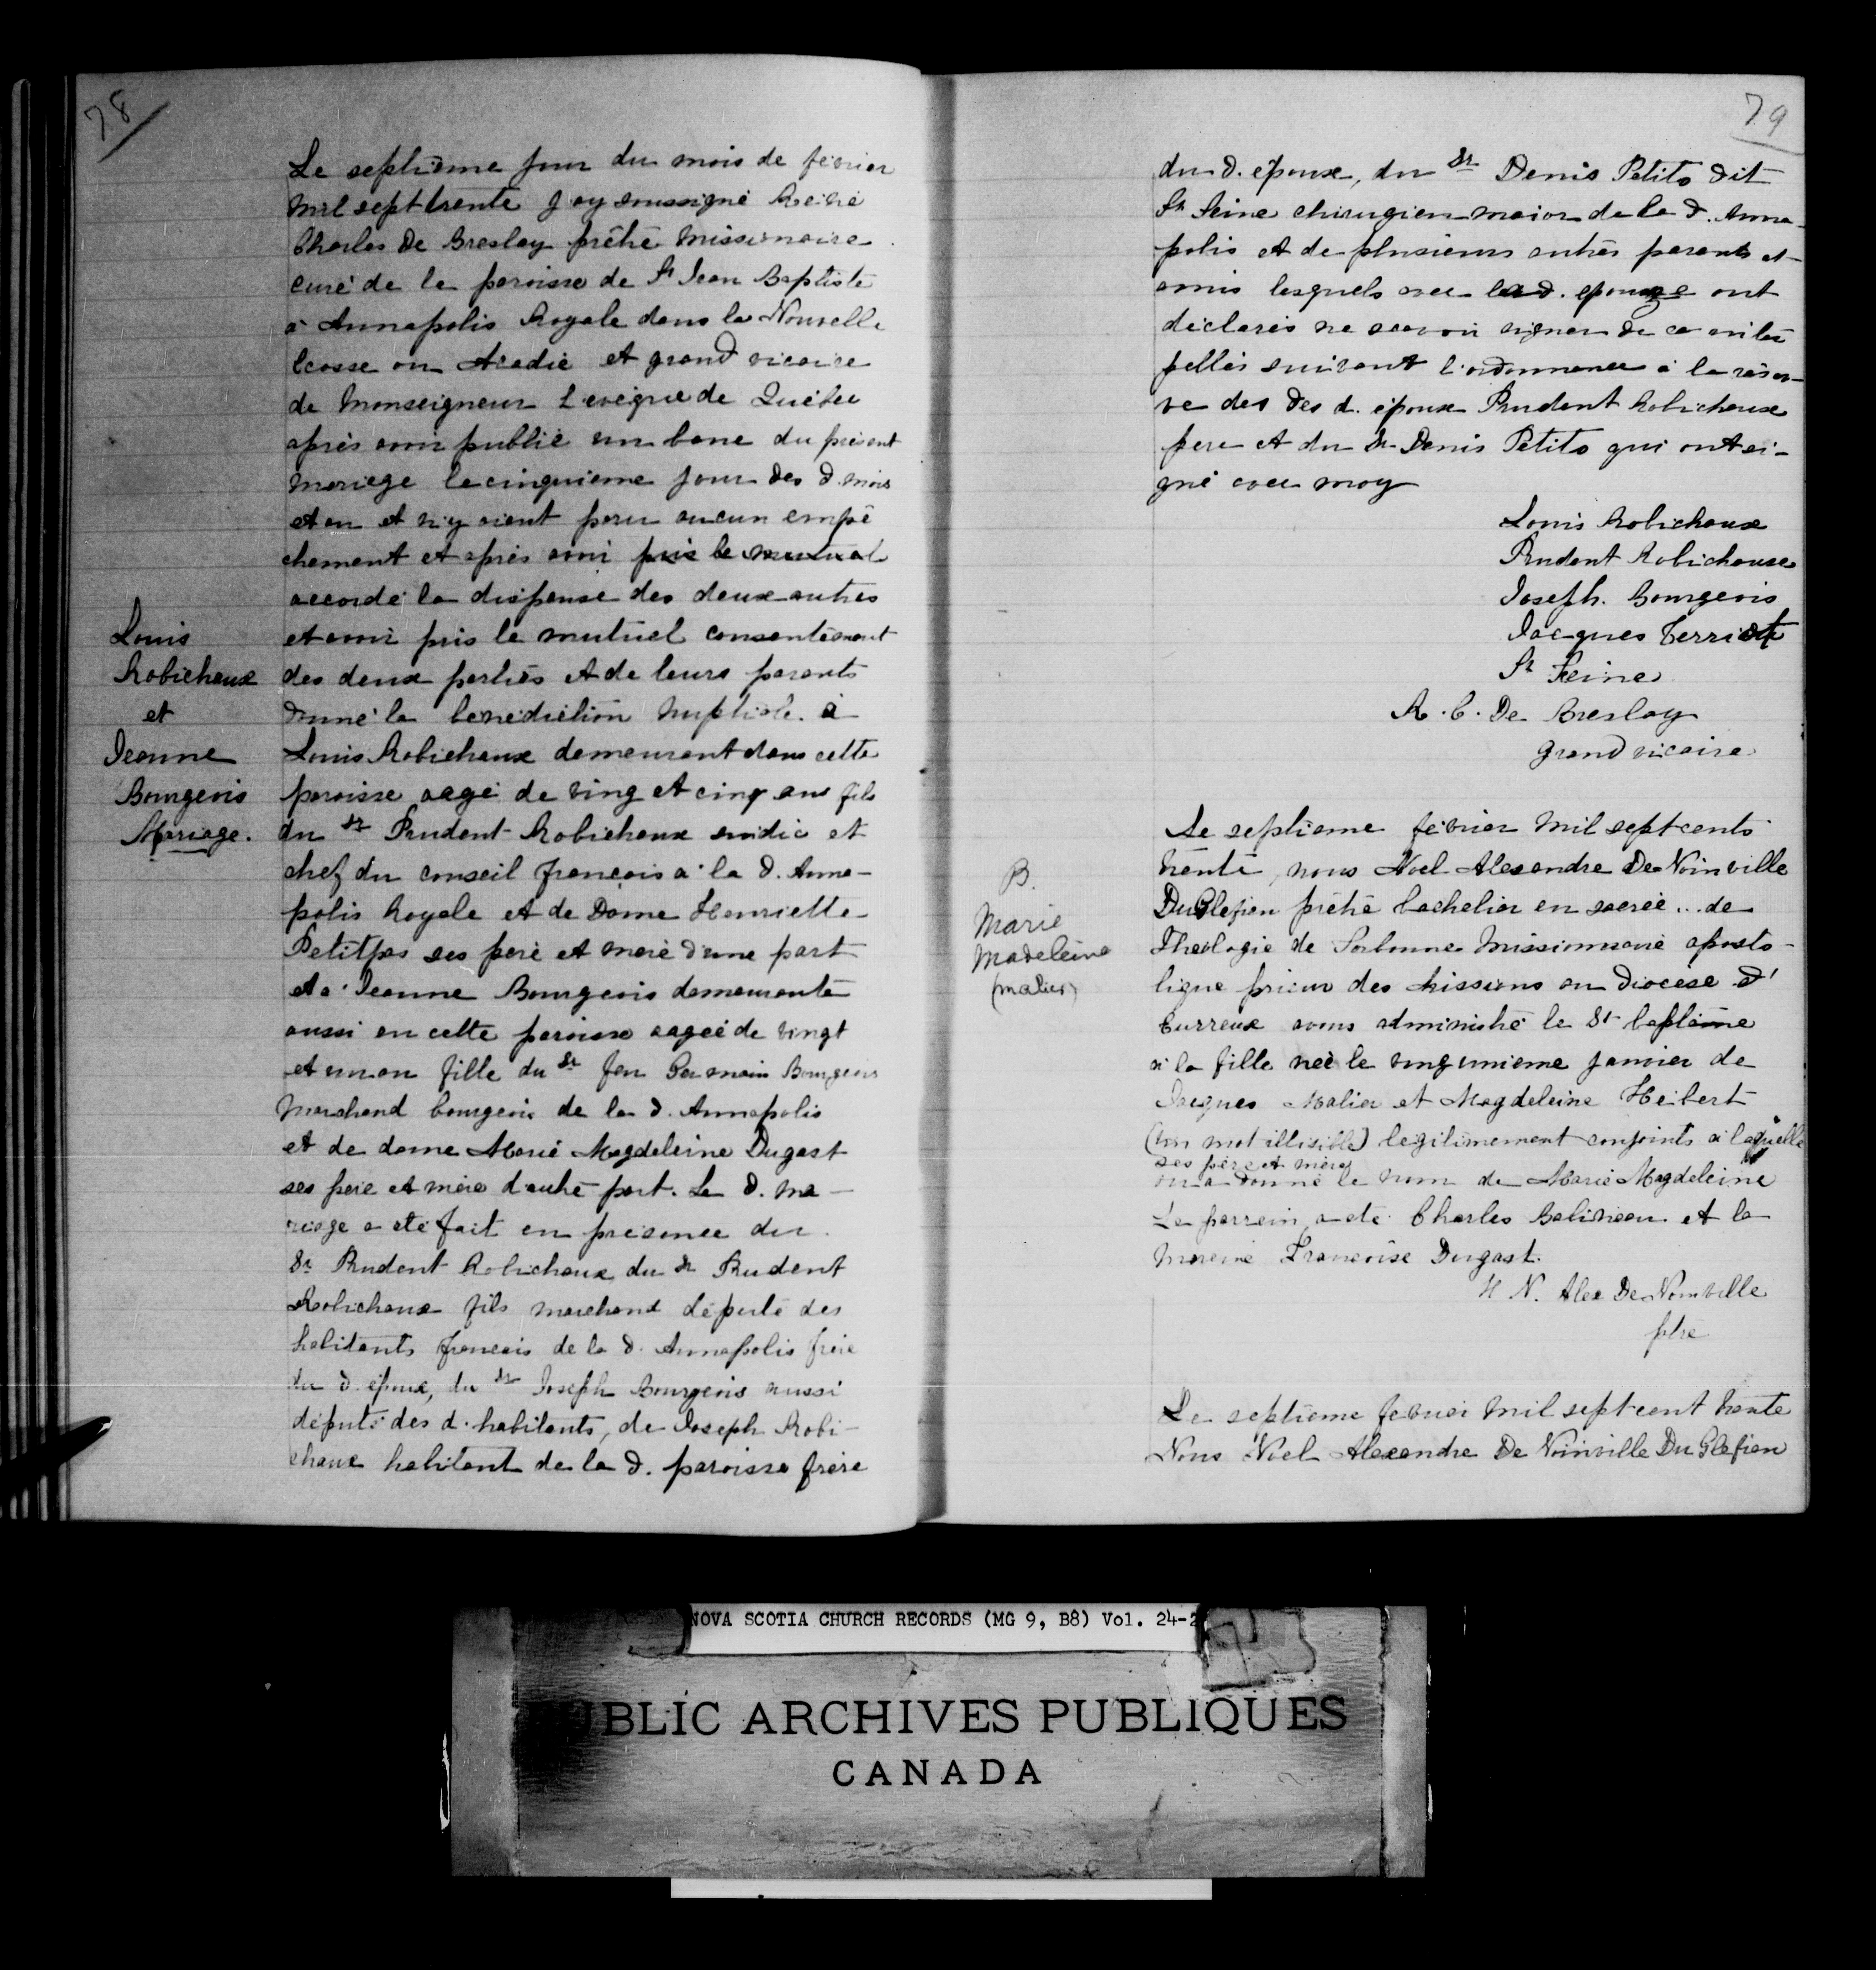 78
Le septième jour du mois de février
mil sept trente j'ay soussigné Réné
Charles De Breslay prêtré Missionnaire
curé de le paroisse de St Jean Baptiste
à Annapolis Royale dans la Nouvelle
Ecosse ou Acadie et grand vicaire
de Monseigneur L'evêque de Québec
après avoir publié un banc du présent
mariage le cinquieme jour des d. mois
et an et n'y aient paru aucun empê
chement et après avoir pris le mutual
accordé la dispense des deux autres
et avoir pris le mutuel consentement
des deux parties et de leurs parents
donné la bénédiction nuptiale à
Louis Robichaux demeurant dans cette
paroisse aagé de ving et cinq ans fils
du Sr Prudent Robichaux sindic et
chef du conseil françois a la d. Anna-
polis Royale et de Dame Henriette
Petitpas ses peré et meré d'une part
et a Jeanne Bourgeois demeurante
aussi en cette paroisse aageé de vingt
et un an fille du Sr feu Germain Bourgeois
Marchand bourgeois de la d. Annapolis
et de dame Marié Magdeleine Dugast
ses peré et mére d'autré part. Le d. ma-
riage a eté fait en présence du
Sr Prudent Robichaux, du Sr Prudent
Robichaux fils marchand député des
habitants françois de la d. Annapolis frére
du d. époux, du Sr Joseph Bourgeois aussi
députe des d. habitants, de Joseph Robi-
chaux habitant de la d. paroisse frére
Louis
Robichaux
et
Jeanne
Bourgeois
Mariage.
79
du d. époux, du Sr Denis Petito dit
St Seine chirugien maior de la d. Anna-
polis et de plusieurs autrés parents et
amis lesquels avec la d. epouze ont
déclarés ne scavoir signer de ce enter
pellés suivant l'ordonnance à la réser-
ve des des d. époux Prudent Robichaux
pere et du Sr Denis Petito qui ont si-
gné avec moy
Louis Robichaux
Prudent Robichaux
Joseph. Bourgeois
Jacques Terriot
St Seine
R. C. De Breslay
grand vicaire
Le septieme février mil sept cents
trente, nous Noel Alexandre De Noinville
DuGlefien prêtré bachelier en sacreé ... de
Théologie de Sorbonne Missionnarie aposto-
lique prieur des Missions au diocèse d'
Eurreux avons administré le St baptême
a la fille neè le vingunieme janvier de
Jacques Malier et Magdeleine Hébert
(un mot illisible) legitimement conjoints a laquelle
ses pére et mère
on a donné le nom de Marié Magdeleine
Le parrein a eté Charles Belineau et la
Mareine Francoise Dugast.
H N. Alex De Noinville
ptré
Le septieme fevrier mil sept cent trente
Nous Noel Alexandre De Noinville Du Glefien
B.
Marie
Madeleine
(malier)
NOVA SCOTIA CHURCH RECORDS (MG 9, B8) Vol. 24-2
PUBLIC ARCHIVES PUBLIQUES
CANADA